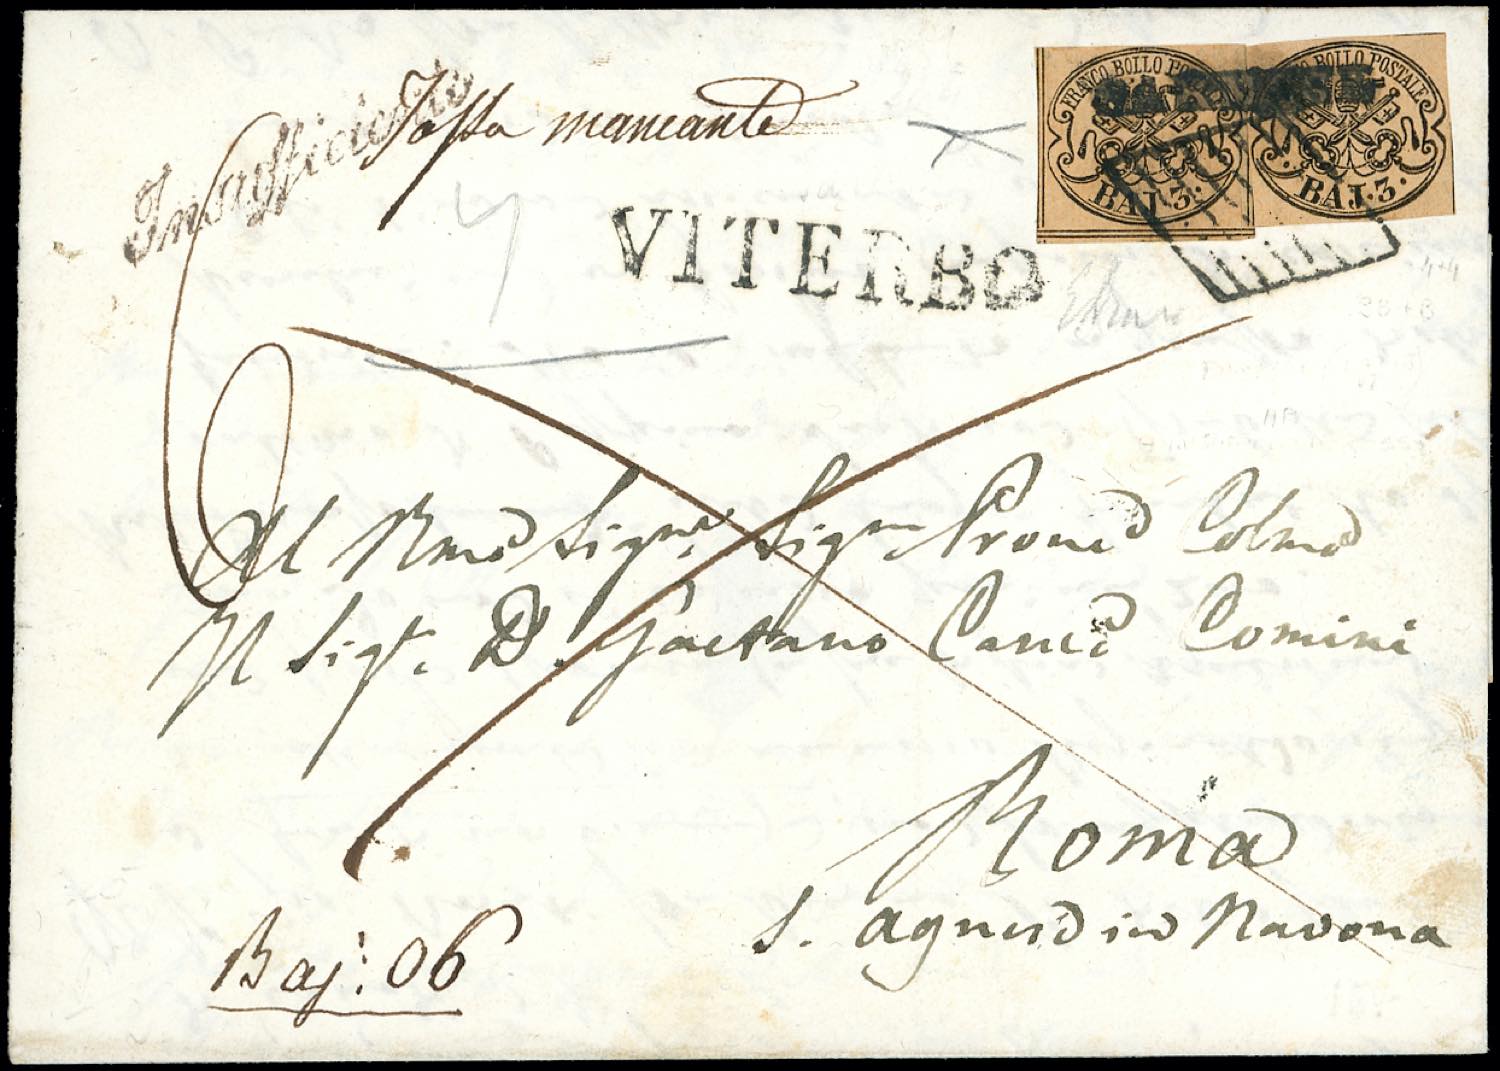 Insufficiente
Tassa mancante
FRANCO BOLLO POSTALE
BAJ. 3.
FRANCO BOLLO POSTALE
BAJ. 3.
VITERBO
Al Rmo Sigre Sigre Prone Colmo
Il Sigr. D. Gaetano Canco Comini
Roma
S. Agnese in Navona
Baj: 06